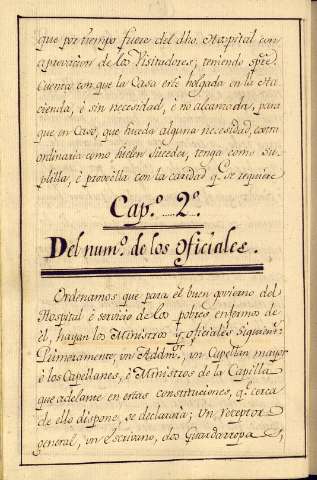 que por tiempo fuere del dho. Hospital con
aprovacion de los Visitadores; teniendo spre.
Cuenta con que la Casa esté holgada en la Ha
cienda, é sin necesidad, é no alcanzada, para
que en Caso, que suceda alguna necesidad, extra
ordinaria como suelen suceder, tenga como su
plilla, é proveella con la caridad qe. se requiere
Cap.º 2.º
Del num.º de los Oficiales.
Ordenamos que para él buen govierno del
Hospital é servicio de los pobres enfermos de
él, hayan los Ministros y oficiales siguientes
Primeramente, un Addmor., un Capellan mayor
é los Capellanes, é Ministros de la Capilla
que adelante en estas constituciones, qe. cerca
de ello dispone, se declarará; Un receptor
general, un Escrivano, dos Guardarropa